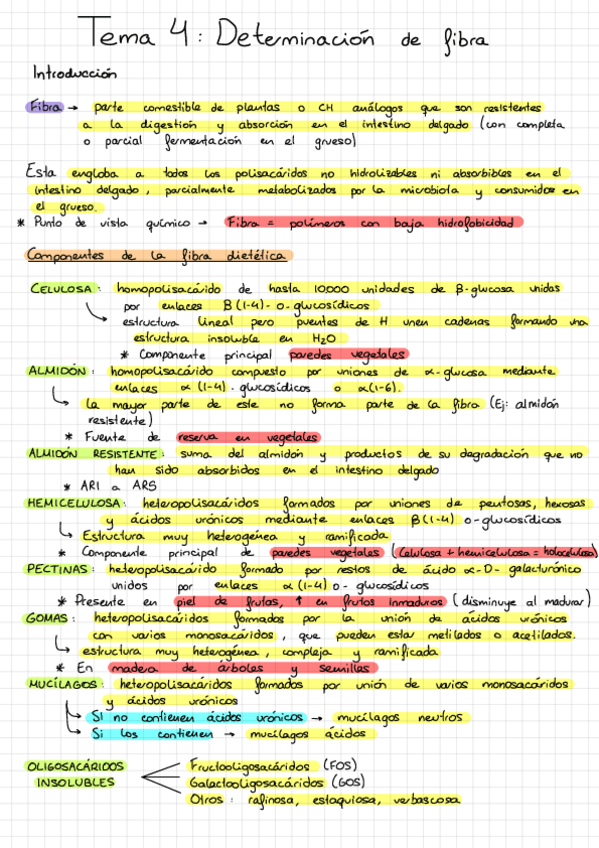 Tema 4: Determinación de fibra
Introducción
Fibra → parte comestible de plantas o CH análogos que son resistentes
a la digestión y absorción en el intestino delgado (con completa
o parcial fermentación en el grueso)
Esta engloba a todos los polisacáridos no hidrolizables ni absorbibles en el
intestino delgado, parcialmente metabolizados por la microbiota y consumidos en
el grueso.
* Punto de vista químico → Fibra = polímeros con baja hidrofobicidad
Componentes de la fibra dietética
CELULOSA: homopolisacárido de hasta 10.000 unidades de β-glucosa unidas
por enlaces β(1-4)-o-glucosídicos
estructura lineal pero puentes de H unen cadenas formando una
estructura insoluble en H2O
* Componente principal paredes vegetales
ALMIDÓN: homopolisacárido compuesto por uniones de α-glucosa mediante
enlaces α(1-4)-glucosídicos o α(1-6).
la mayor parte de este no forma parte de la fibra (Ej: almidón
resistente)
* Fuente de reserva en vegetales
ALMIDÓN RESISTENTE: suma del almidón y productos de su degradación que no
han sido absorbidos en el intestino delgado
* AR1 a AR5
HEMICELULOSA: heteropolisacáridos formados por uniones de pentosas, hexosas
y ácidos urónicos mediante enlaces β(1-4) o-glucosídicos
Estructura muy heterogénea y ramificada
* Componente principal de paredes vegetales (Celulosa + hemicelulosa = holocelulosa)
PECTINAS: heteropolisacárido formado por restos de ácido α-D-galacturónico
unidos por enlaces α(1-4) o-glucosídicos
* Presente en piel de frutas, ↑ en frutos inmaduros (disminuye al madurar)
GOMAS: heteropolisacáridos formados por la unión de ácidos urónicos
con varios monosacáridos, que pueden estar metilados o acetilados.
estructura muy heterogénea, compleja y ramificada
* En madera de árboles y semillas
MUCÍLAGOS: heteropolisacáridos formados por unión de varios monosacáridos
y ácidos urónicos
Si no contienen ácidos urónicos → mucílagos neutros
Si los contienen → mucílagos ácidos
OLIGOSACÁRIDOS
INSOLUBLES
Fructooligosacáridos (FOS)
Galactooligosacáridos (GOS)
Otros: rafinosa, estaquiosa, verbascosa